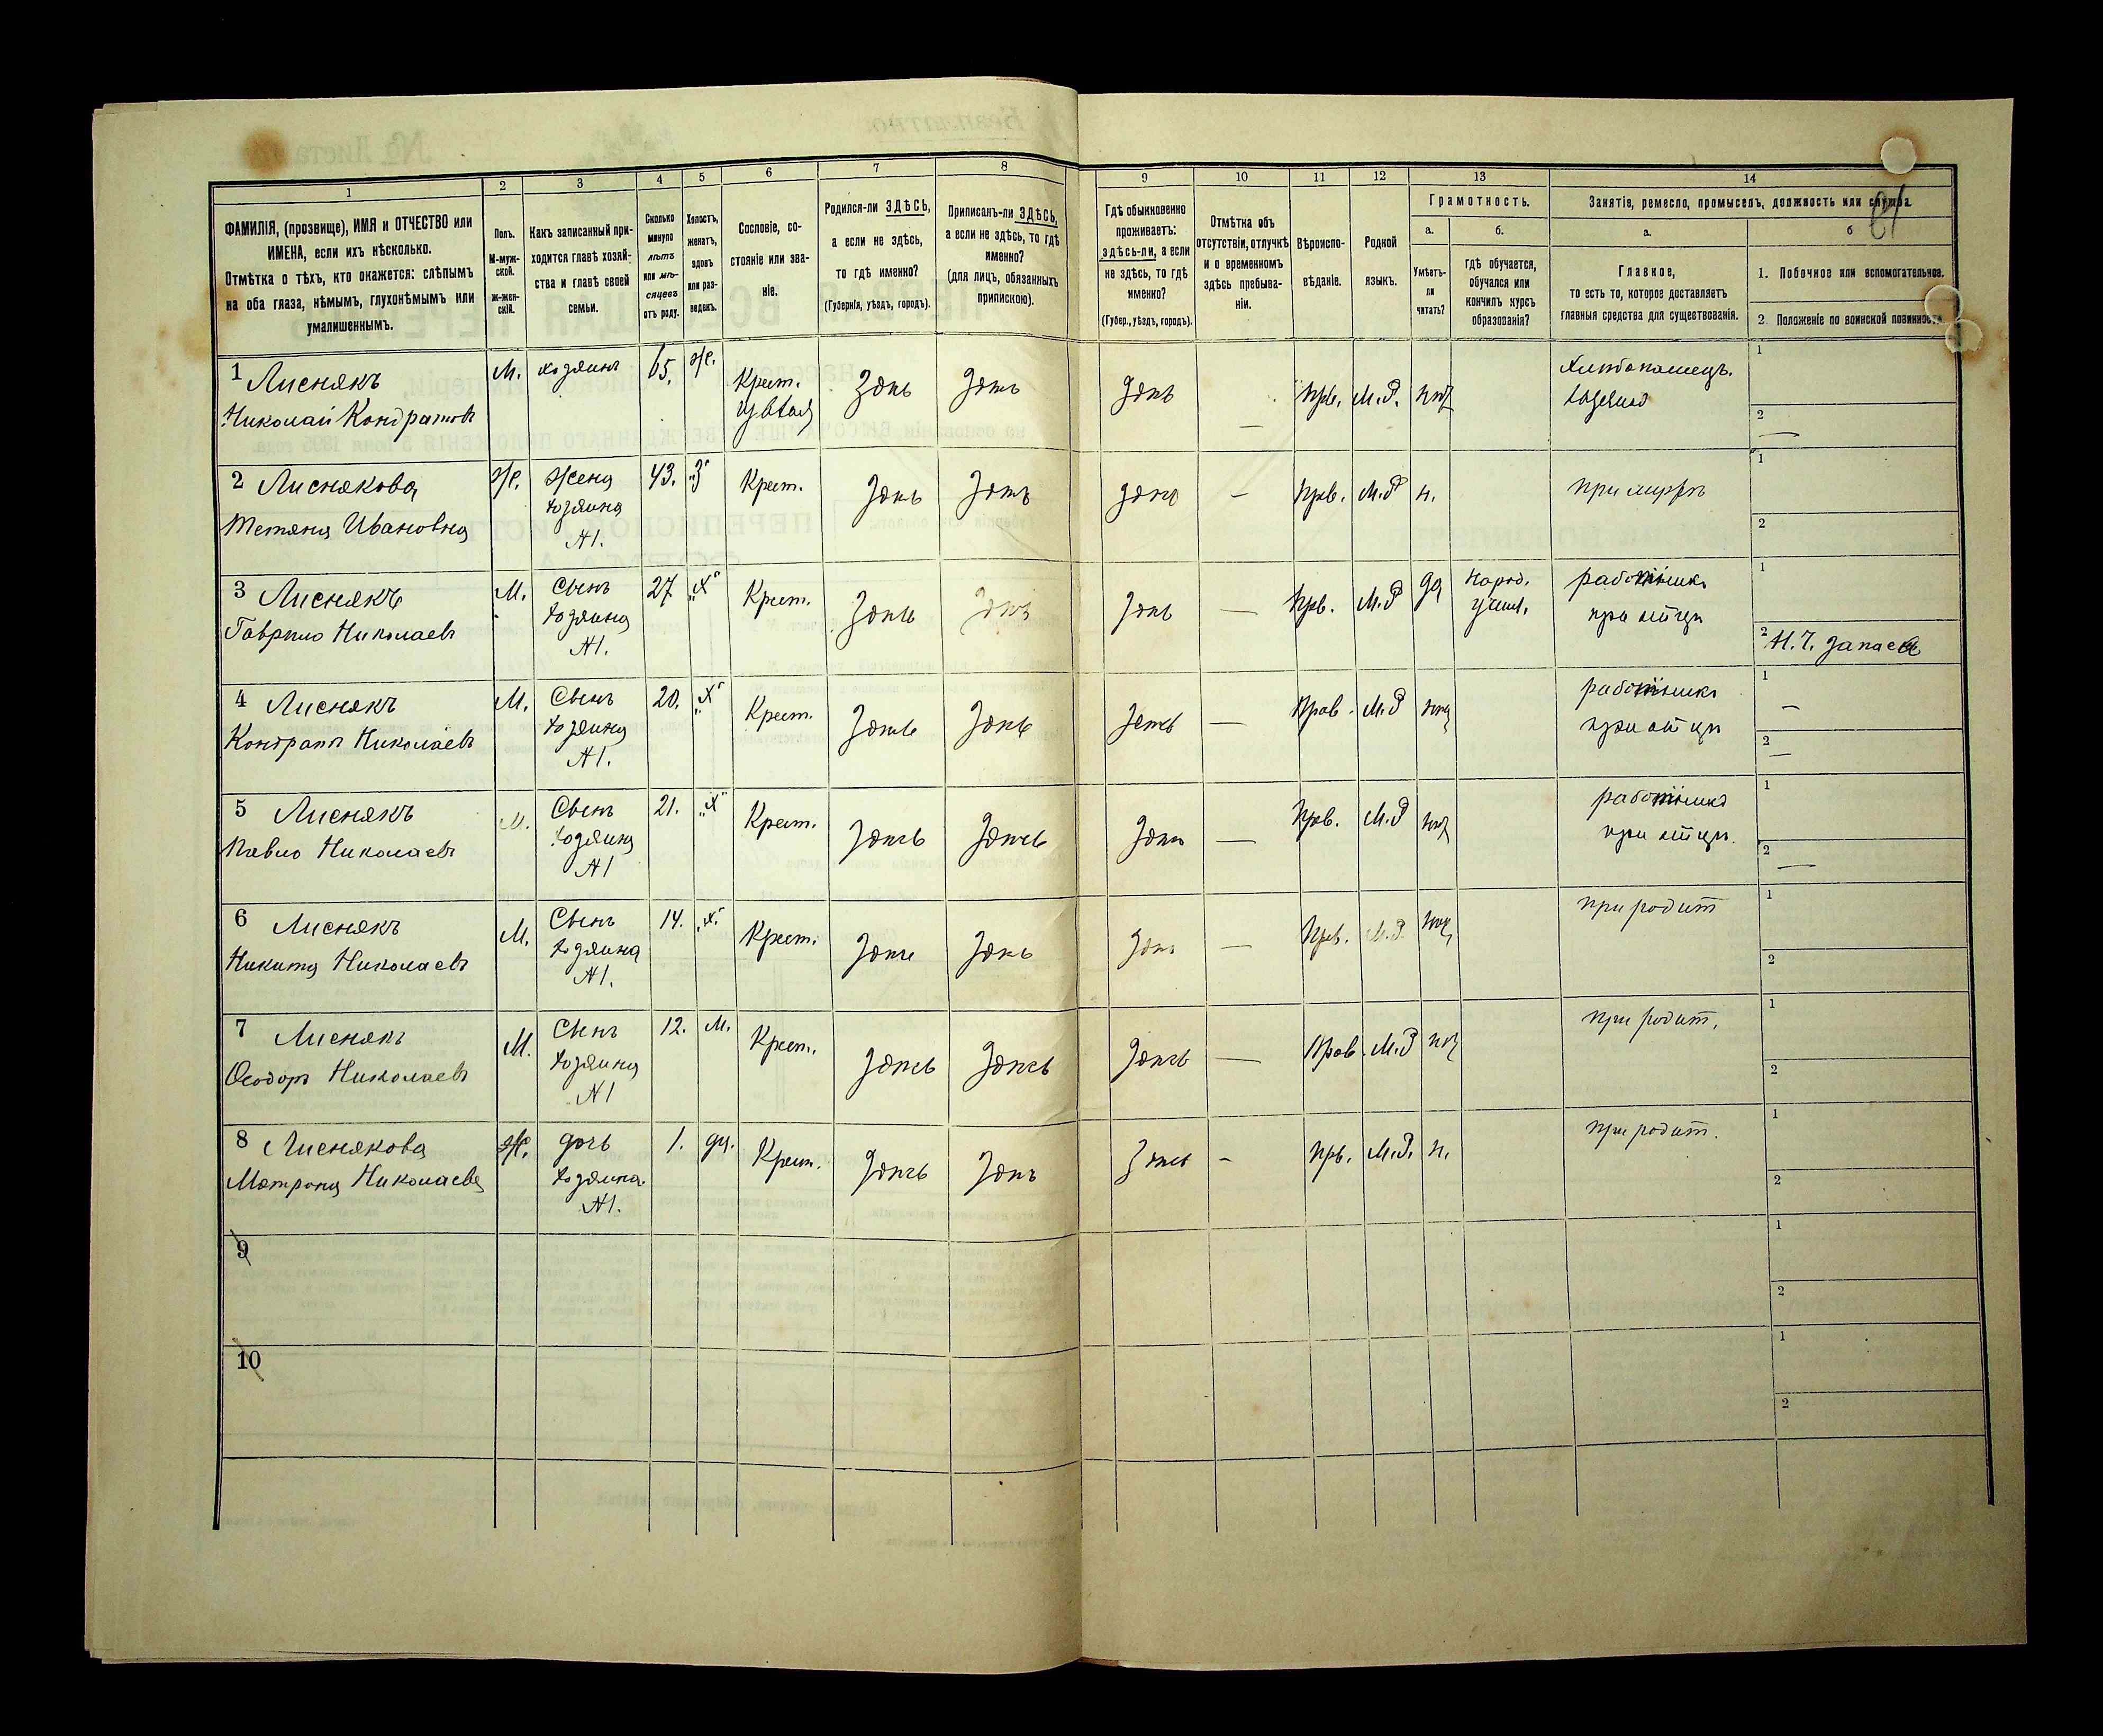 Безплатно.
№ Листа
1 2 3 4 5 6 7 8 9 10 11 12 13 14
ФАМИЛІЯ, (прозвище), ИМЯ и ОТЧЕСТВО или
ИМЕНА, если ихъ нѣсколько.
Отмѣтка о тѣхъ, кто окажется: слѣпымъ
на оба глаза, нѣмымъ, глухонѣмымъ или
умалишеннымъ.
Полъ.
М-муж-
ской.
Ж-жен-
скій.
Какъ записанный при-
ходится главѣ хозяй-
ства и главѣ своей
семьи.
Сколько
минуло
лѣтъ
или мѣ-
сяцевъ
отъ роду.
Холостъ,
женатъ,
вдовъ
или раз-
веденъ.
Сословіе, со-
стояніе или зва-
ніе.
Родился-ли ЗДѢСЬ,
а если не здѣсь,
то гдѣ именно?
(Губернія, уѣздъ, городъ).
Приписанъ-ли ЗДѢСЬ,
а если не здѣсь, то гдѣ
именно?
(для лицъ, обязанныхъ
припискою).
Гдѣ обыкновенно
проживаетъ:
здѣсь-ли, а если
не здѣсь, то гдѣ
именно?
(Губер., уѣздъ, городъ).
Отмѣтка объ
отсутствіи, отлучкѣ
и о временномъ
здѣсь пребыва-
ніи.
Вѣроиспо-
вѣданіе.
Родной
языкъ.
Грамотность.
а.
Умѣетъ-
ли
читать?
б.
гдѣ обучается,
обучался или
кончилъ курсъ
образованія?
Занятіе, ремесло, промыселъ, должность или служба.
а.
Главное,
то есть то, которое доставляетъ
главныя средства для существованія.
б
1. Побочное или вспомогательное.
2. Положеніе по воинской повинности.
1 Лиснякъ М. хозяинъ 65. Ж. Крест. Здѣсь Здѣсь Здѣсь — Прв. М.Р. нѣт Хлѣбопашецъ. 1
Николай Кондратовъ хозяинъ 2 —
2 Лиснякова Ж. Жена 43. "З" Крест. Здѣсь Здѣсь Здѣсь — Прв. М.Р н. при мужѣ 1
Тетяна Ивановна хозяина 2
№1.
3 Лиснякъ М. Сынъ 27 "Х" Крест. Здѣсь Здѣсь Здѣсь — Прв. М.Р да Народ. работникъ 1
Гаврило Николаевъ хозяина учил. при отцѣ
№1. 2 Н.Ч. запаса
4 Лиснякъ М. Сынъ 20. "Х" Крест. Здѣсь Здѣсь Здѣсь — Прав. М.Р нѣт работникъ 1 —
Кондратъ Николаевъ хозяина при отцѣ 2 —
№1.
5 Лиснякъ М. Сынъ 21. "Х" Крест. Здѣсь Здѣсь Здѣсь — Прв. М.Р нѣт работникъ 1
Павло Николаевъ хозяина при отцѣ. 2 —
№1
6 Лиснякъ М. Сынъ 14. "Х" Крест. Здѣсь Здѣсь Здѣсь — Прв. М.Р. нѣт при родит 1
Никита Николаевъ хозяина 2
№1.
7 Лиснякъ М. Сынъ 12. М. Крест. Здѣсь Здѣсь Здѣсь — Прав. М.Р нѣт при родит. 1
Ѳеодоръ Николаевъ хозяина 2
№1
8 Лиснякова Ж. дочь 1. дч. Крест. Здѣсь Здѣсь Здѣсь — Прв. М.Р. н. при родит. 1
Мотрона Николаева хозяина 2
№1.
9 1
2
10 1
2